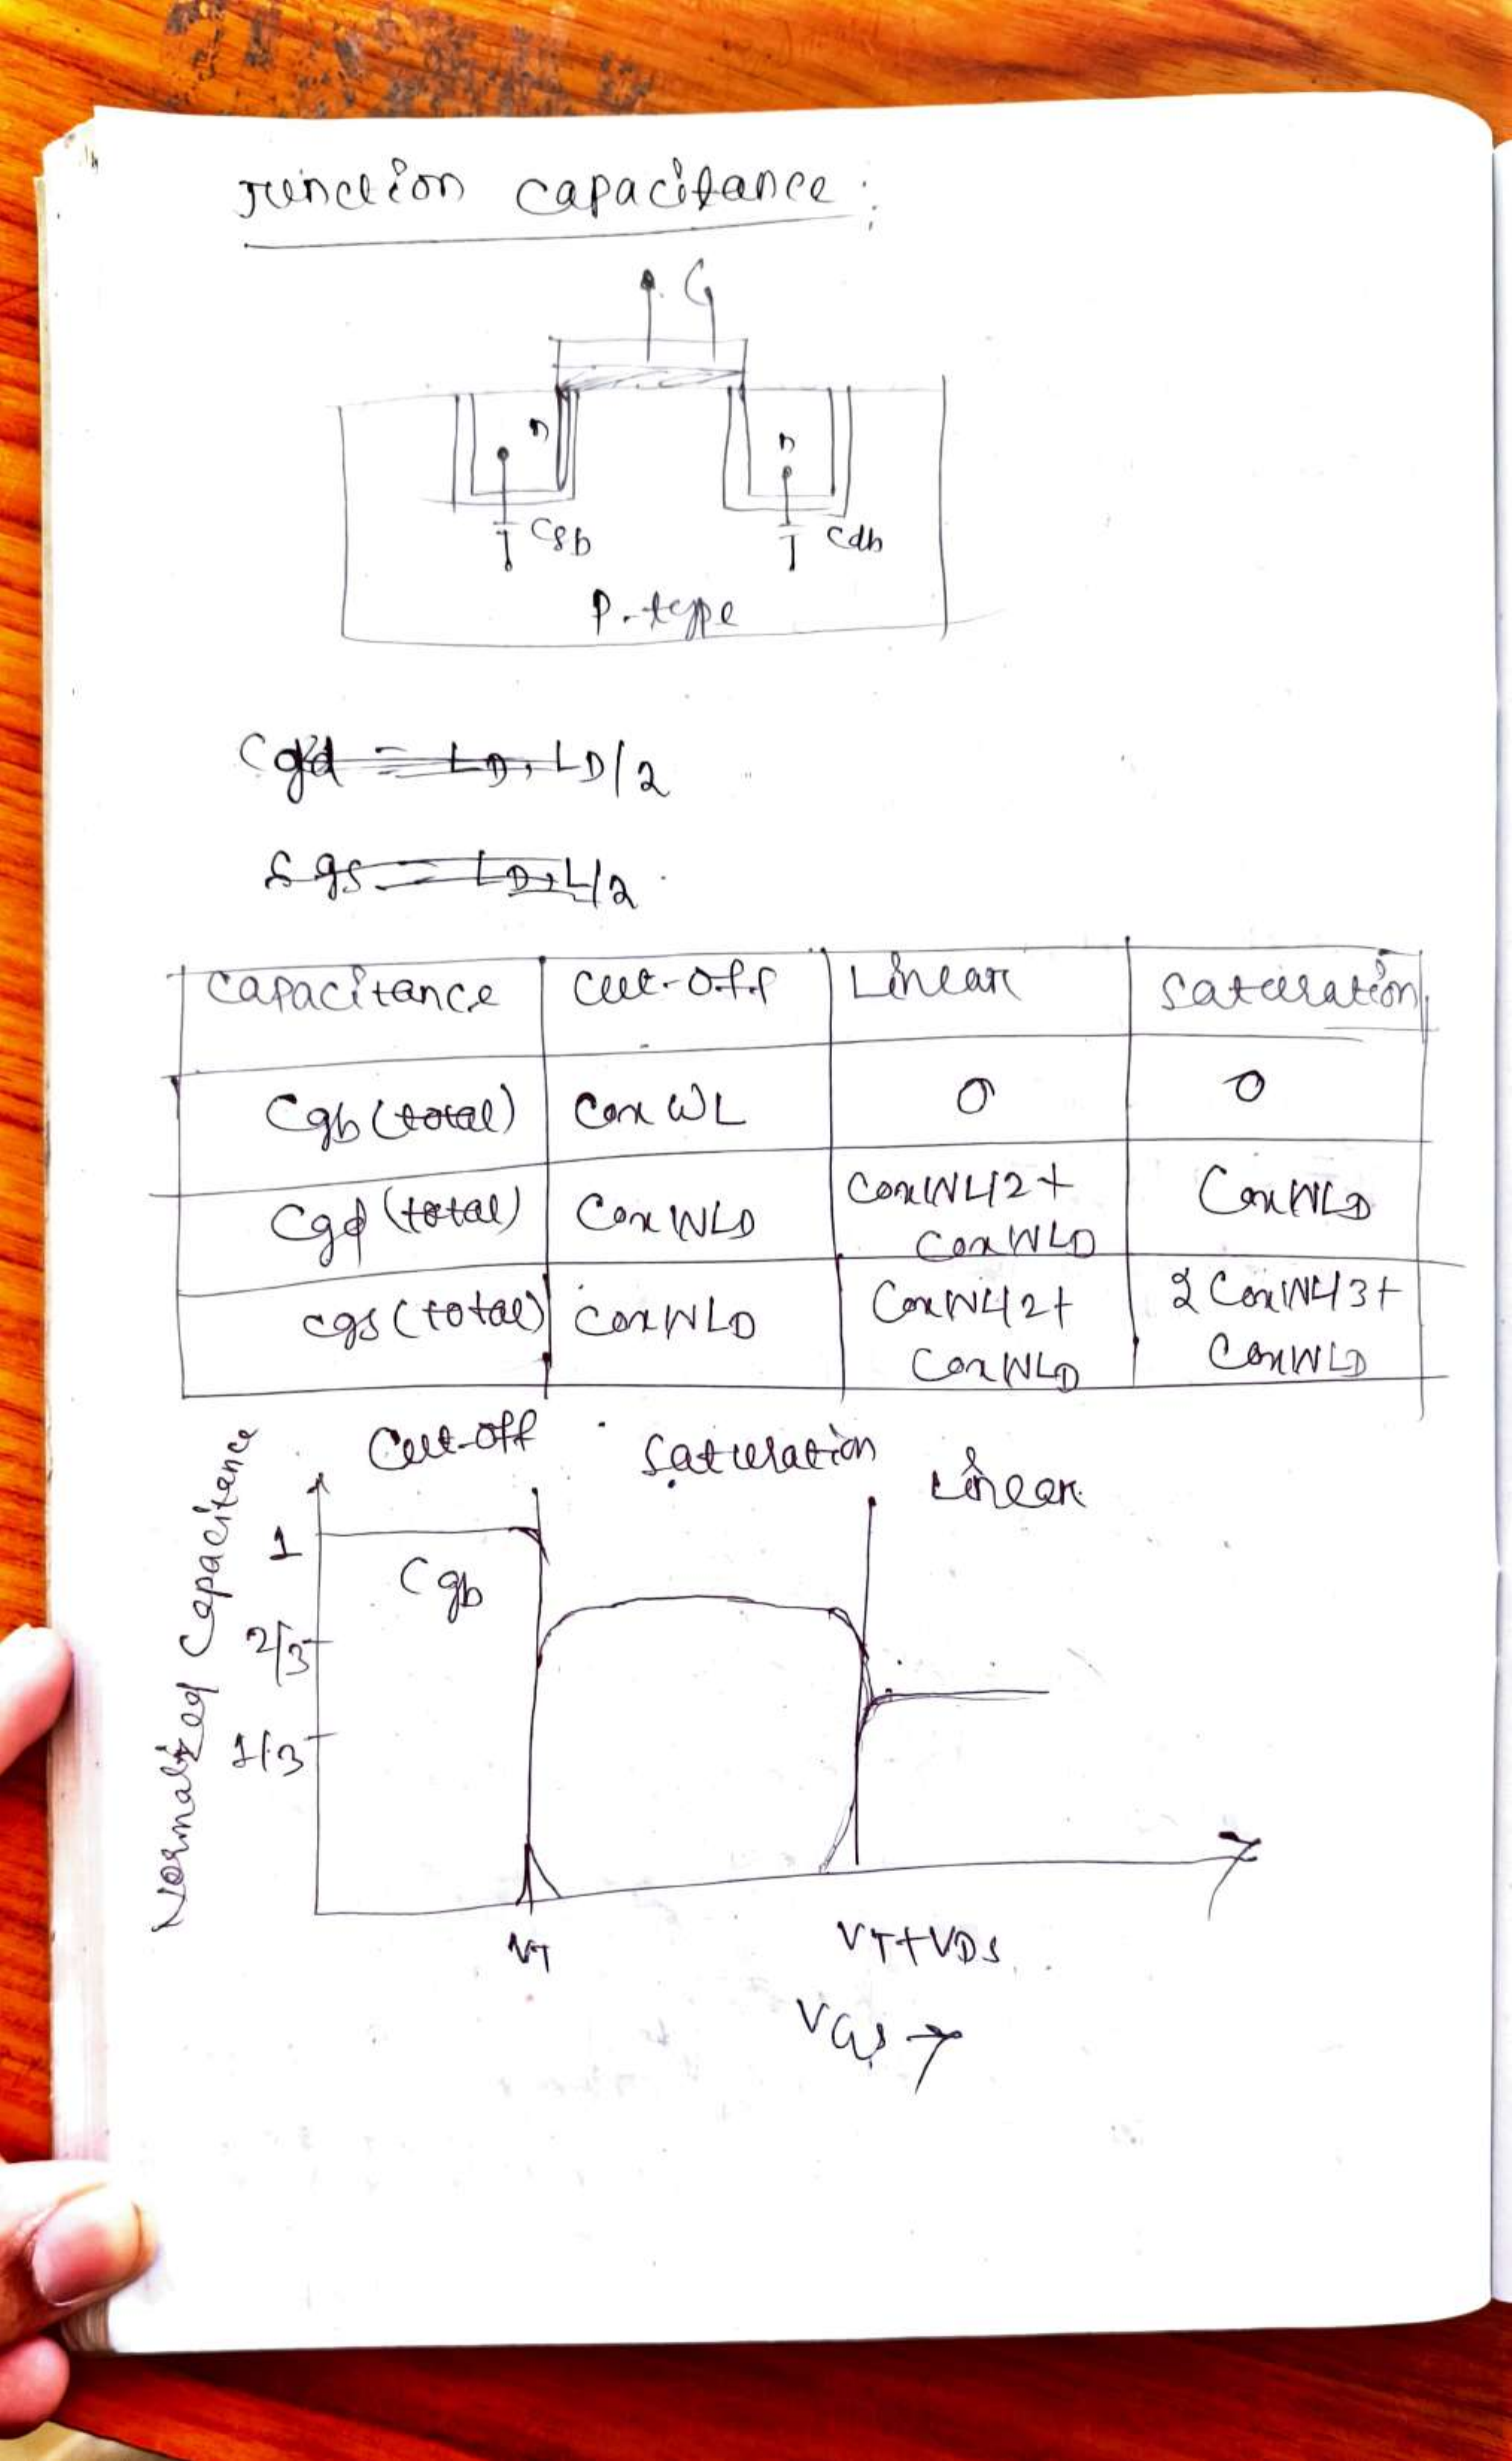 Junction capacitance :
G
n n
Csb Cdb
P-type
Cgd = LD, LD/2
Cgs = LD, L/2
Capacitance Cut-off Linear Saturation
Cgb (total) Cox WL 0 0
Cgd (total) Cox WLD CoxWL/2 + CoxWLD CoxWLD
Cgs (total) CoxWLD CoxWL/2 + CoxWLD 2 CoxWL/3 + CoxWLD
Cut-off Saturation Linear
Normalized Capacitance
1
Cgb
2/3
1/3
VT VT+VDS
VGS →